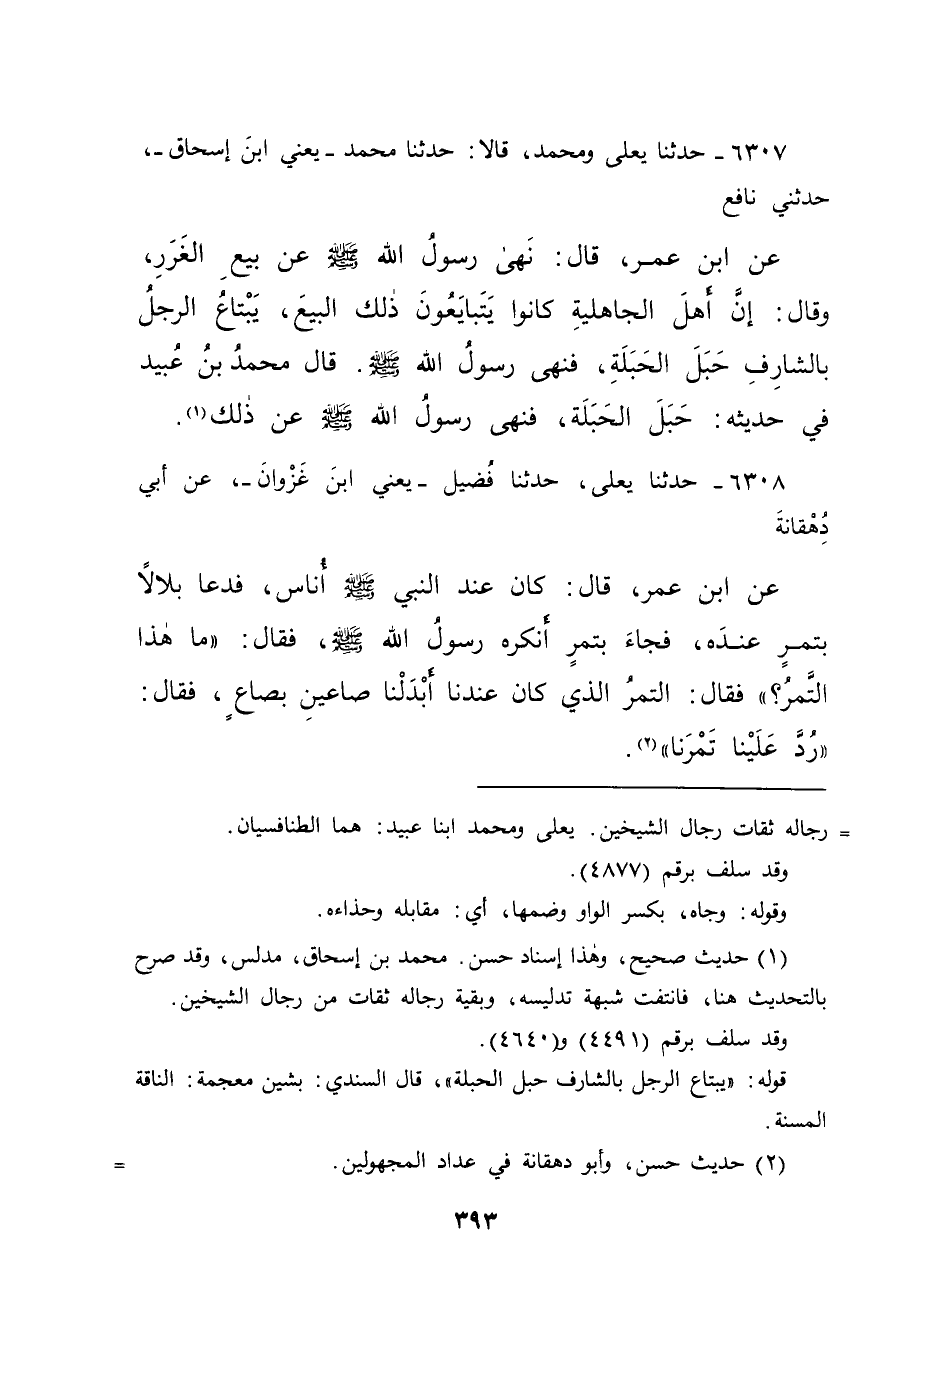 ٦٣٠٧ ـ حدثنا يعلى ومحمد، قالا: حدثنا محمد ـ يعني ابنَ إسحاق ـ،
حدثني نافع
عن ابن عمـر، قال: نَهىٰ رسولُ الله ﷺ عن بيعِ الغَرَرِ،
وقال: إنَّ أَهلَ الجاهليةِ كانوا يَتَبايَعُونَ ذٰلك البيعَ، يَبْتاعُ الرجلُ
بالشارِفِ حَبَلَ الحَبَلَةِ، فنهى رسولُ الله ﷺ. قال محمدُ بنُ عُبيد
في حديثه: حَبَلَ الحَبَلَة، فنهى رسولُ الله ﷺ عن ذٰلك(١).
٦٣٠٨ ـ حدثنا يعلى، حدثنا فُضيل ـ يعني ابنَ غَزْوانَ ـ، عن أبي
دُِهْقانةَ
عن ابن عمر، قال: كان عند النبي ﷺ أُناس، فدعا بلالاً
بتمـرٍ عنـدَه، فجاءَ بتمرٍ أَنكره رسولُ الله ﷺ، فقال: «ما هٰذا
التَّمرُ؟» فقال: التمرُ الذي كان عندنا أَبْدَلْنا صاعينِ بصاعٍ، فقال:
«رُدَّ عَلَيْنا تَمْرَنا»(٢).
= رجاله ثقات رجال الشيخين. يعلى ومحمد ابنا عبيد: هما الطنافسيان.
وقد سلف برقم (٤٨٧٧).
وقوله: وجاه، بكسر الواو وضمها، أي: مقابله وحذاءه.
(١) حديث صحيح، وهٰذا إسناد حسن. محمد بن إسحاق، مدلس، وقد صرح
بالتحديث هنا، فانتفت شبهة تدليسه، وبقية رجاله ثقات من رجال الشيخين.
وقد سلف برقم (٤٤٩١) و(٤٦٤٠).
قوله: «يبتاع الرجل بالشارف حبل الحبلة»، قال السندي: بشين معجمة: الناقة
المسنة.
(٢) حديث حسن، وأبو دهقانة في عداد المجهولين. =
٣٩٣